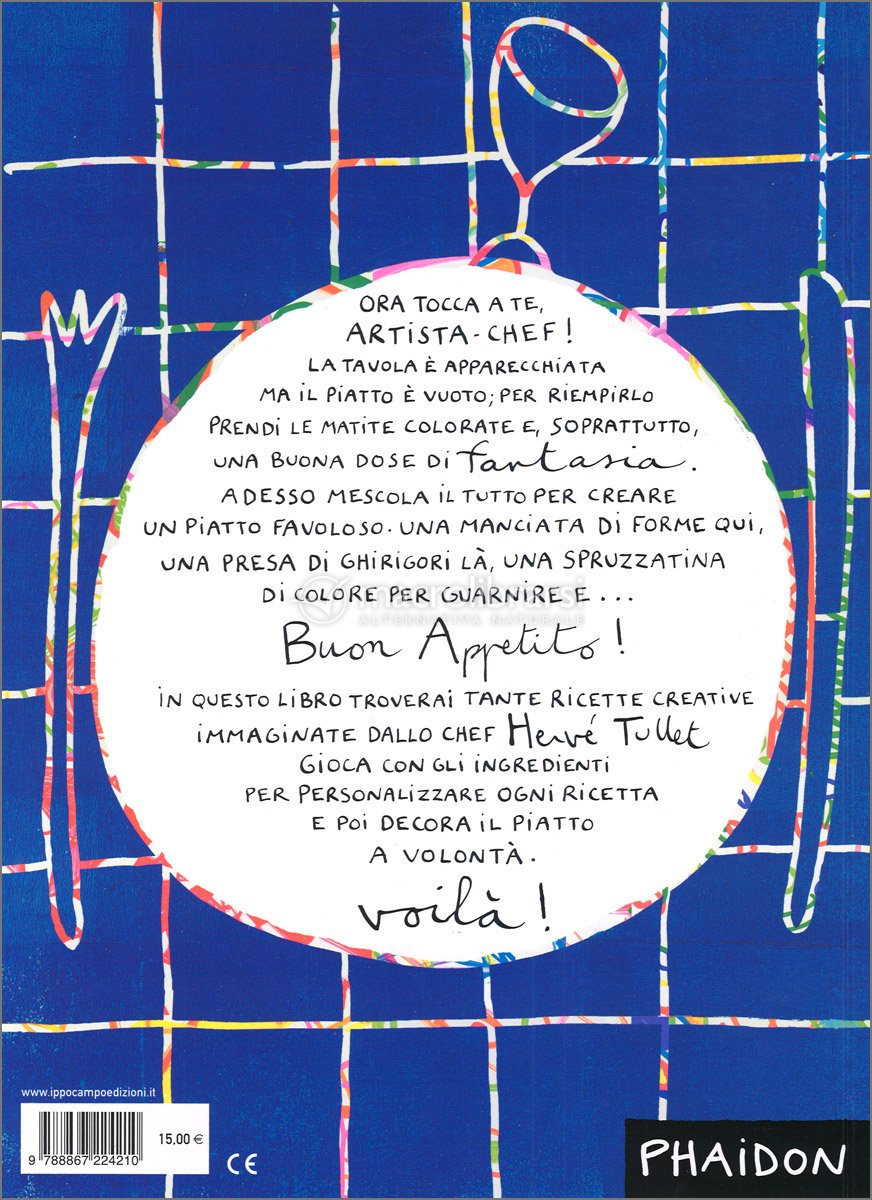 ORA TOCCA A TE,
ARTISTA-CHEF!
LA TAVOLA È APPARECCHIATA
MA IL PIATTO È VUOTO; PER RIEMPIRLO
PRENDI LE MATITE COLORATE E, SOPRATTUTTO,
UNA BUONA DOSE DI fantasia.
ADESSO MESCOLA IL TUTTO PER CREARE
UN PIATTO FAVOLOSO. UNA MANCIATA DI FORME QUI,
UNA PRESA DI GHIRIGORI LÀ, UNA SPRUZZATINA
DI COLORE PER GUARNIRE E ...
macrolibrarsi
ALTERNATIVA NATURALE
Buon Appetito!
IN QUESTO LIBRO TROVERAI TANTE RICETTE CREATIVE
IMMAGINATE DALLO CHEF Hervé Tullet
GIOCA CON GLI INGREDIENTI
PER PERSONALIZZARE OGNI RICETTA
E POI DECORA IL PIATTO
A VOLONTÀ.
voilà!
www.ippocampoedizioni.it
15,00 €
9 788867 224210
CE
PHAIDON